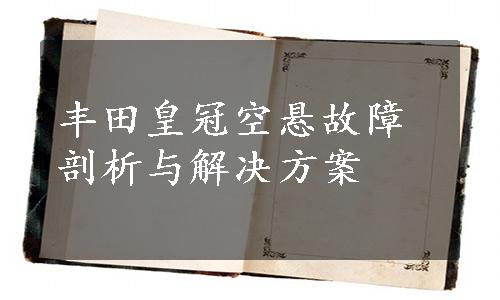 丰田皇冠空悬故障
剖析与解决方案